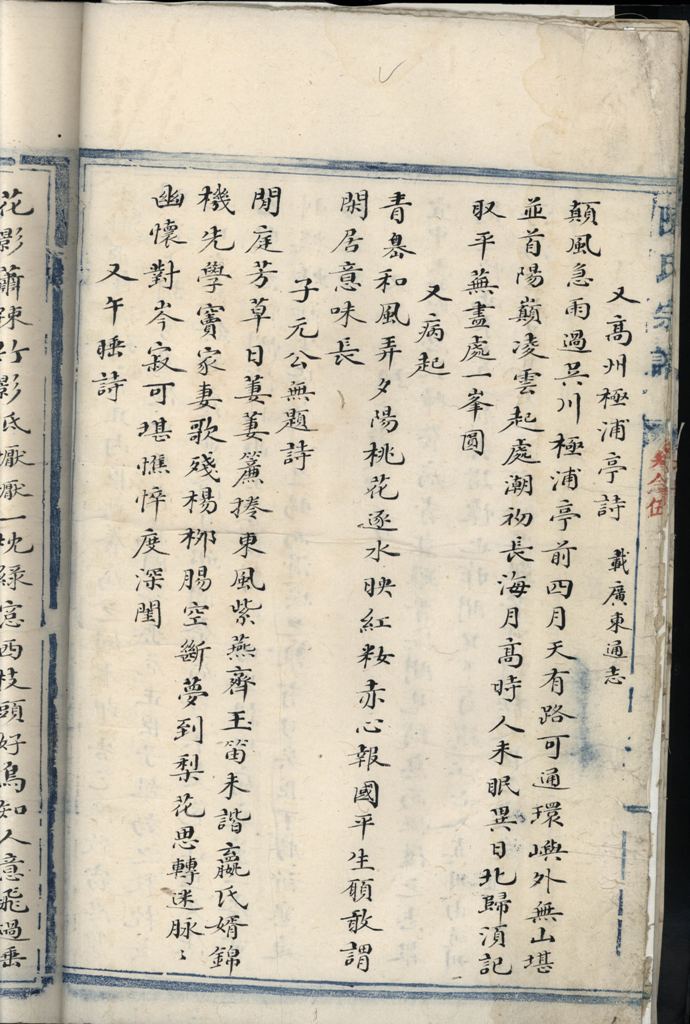 又高州極浦亭詩 載廣東通志
顛風急雨過吳川極浦亭前四月天有路可通環嶼外無山堪
並首陽巔凌雲起處潮初長海月高時人未眠異日北歸須記
取平蕪盡處一峯圓
又病起
青皋和風弄夕陽桃花逐水映紅妝赤心報國平生願敢謂
閑居意味長
子元公無題詩
閒庭芳草日萋萋簾捲東風紫燕齊玉笛未諧嬴氏婿錦
機先學竇家妻歌殘楊柳腸空斷夢到梨花思轉迷脉〻
幽懷對岑寂可堪憔悴度深閨
又午睡詩
花影蕭疎竹影低懨懨一枕綠窓西枝頭好鳥知人意飛過垂